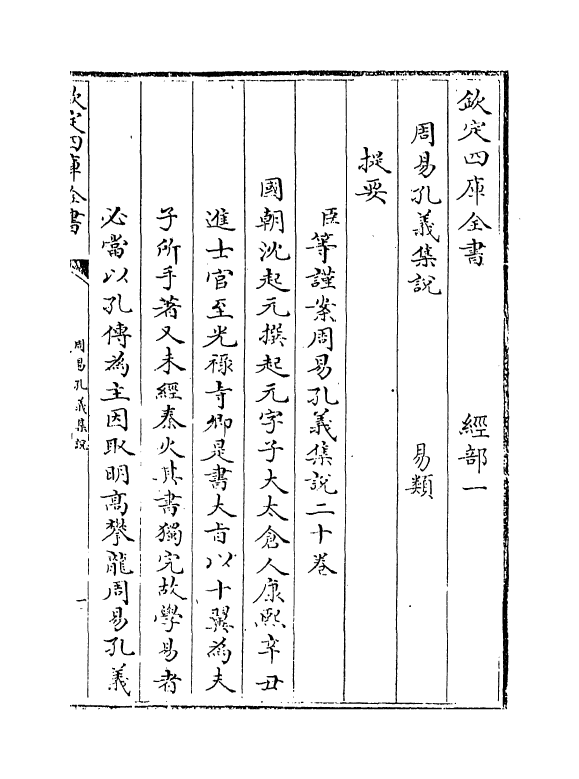 欽定四庫全書　經部一
周易孔義集說　易類
提要
臣等謹案周易孔義集說二十卷
國朝沈起元撰起元字子大太倉人康熙辛丑
進士官至光祿寺卿是書大㫖以十翼為夫
子所手著又未經秦火其書獨完故學易者
必當以孔傳為主因取明髙攀龍周易孔義
欽定四庫全書
周易孔義集說
一